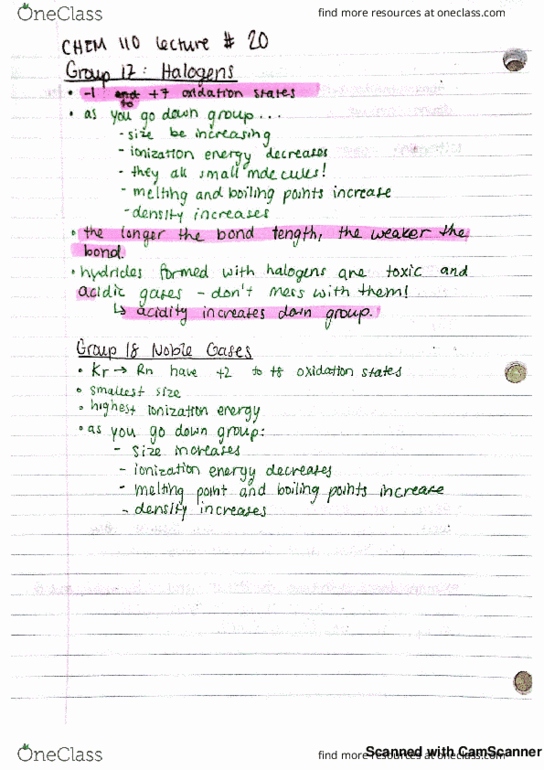 OneClass
find more resources at oneclass.com
CHEM 110 Lecture # 20
Group 17: Halogens
• -1 and +7 oxidation states
to
• as you go down group...
- size be increasing
- ionization energy decreases
- they all small molecules!
- melting and boiling points increase
- density increases
• the longer the bond length, the weaker the
bond.
• hydrides formed with halogens are toxic and
acidic gases - don't mess with them!
↳ acidity increases down group.
Group 18 Noble Gases
• Kr → Rn have +2 to +8 oxidation states
• smallest size
• highest ionization energy
• as you go down group:
- size increases
- ionization energy decreases
- melting point and boiling points increase
- density increases
OneClass
find more resources at oneclass.com
Scanned with CamScanner